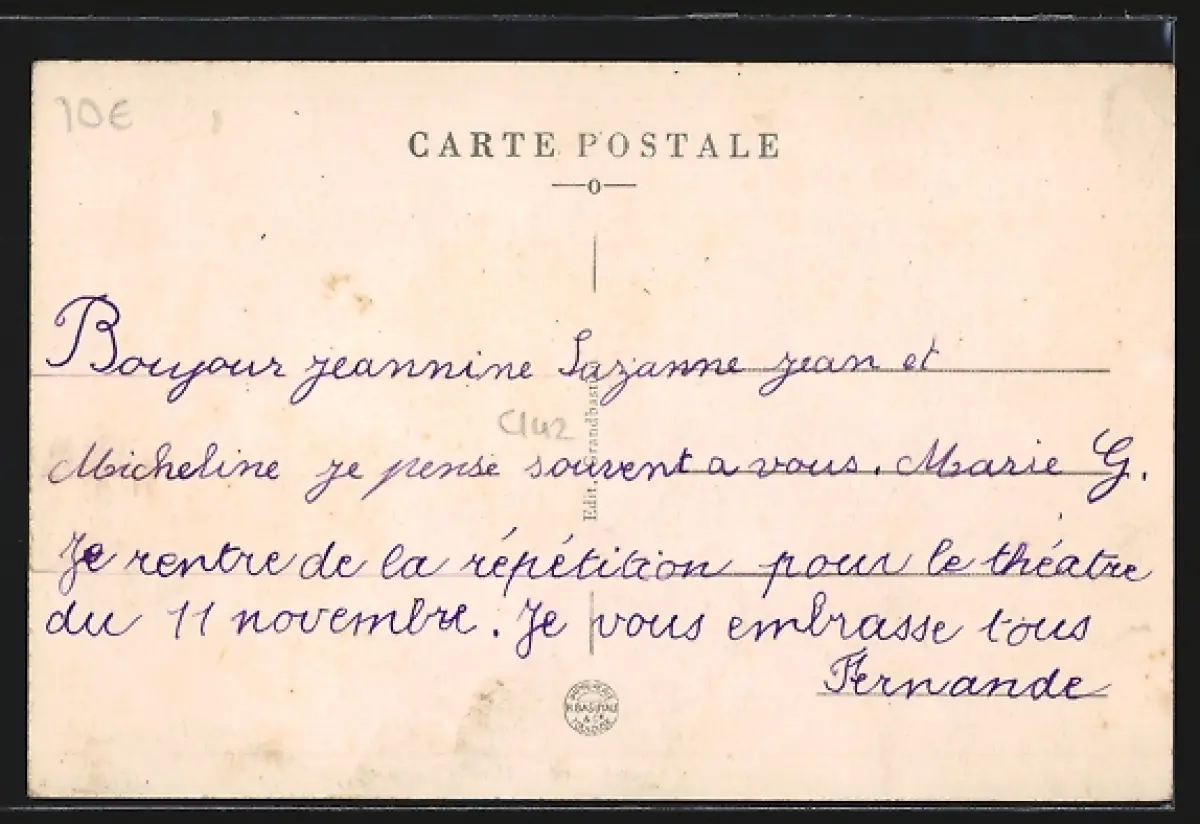 10€
CARTE POSTALE
Boujour jeannine Sazanne jean et
C142
Edit. Grandbast
Micheline je pense souvent a vous. Marie G.
Je rentre de la répétition pour le théatre
du 11 novembre. Je vous embrasse tous
Fernande